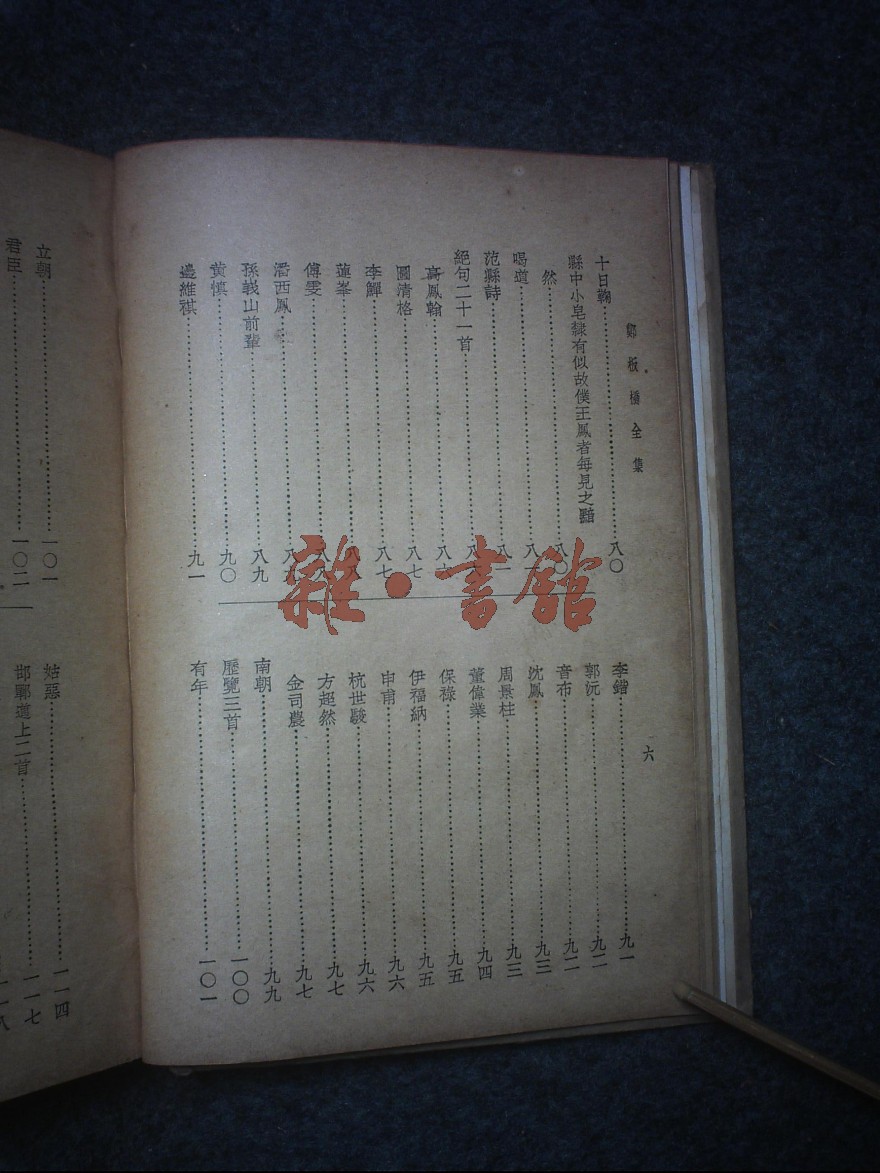 鄭板橋全集
十日鞠……八〇
縣中小皂隸有似故僕王鳳者每見之黯
然……八〇
喝道……八一
范縣詩……八一
絕句二十一首
高鳳翰
圖清格……八七
李鱓……八七
蓮峯……八八
傅雯
潘西鳳
孫峩山前輩……八九
黃慎……九〇
邊維祺……九一
六
李鍇……九一
郭沅……九二
音布……九二
沈鳳……九三
周景柱……九三
董偉業……九四
保祿……九五
伊福納……九五
申甫……九六
杭世駿……九六
方超然……九七
金司農……九七
南朝……九九
歷覽三首……一〇〇
有年……一〇一
立朝……一〇一
君臣……一〇二
姑惡……一一四
邯鄲道上二首……一一七
雜·書館